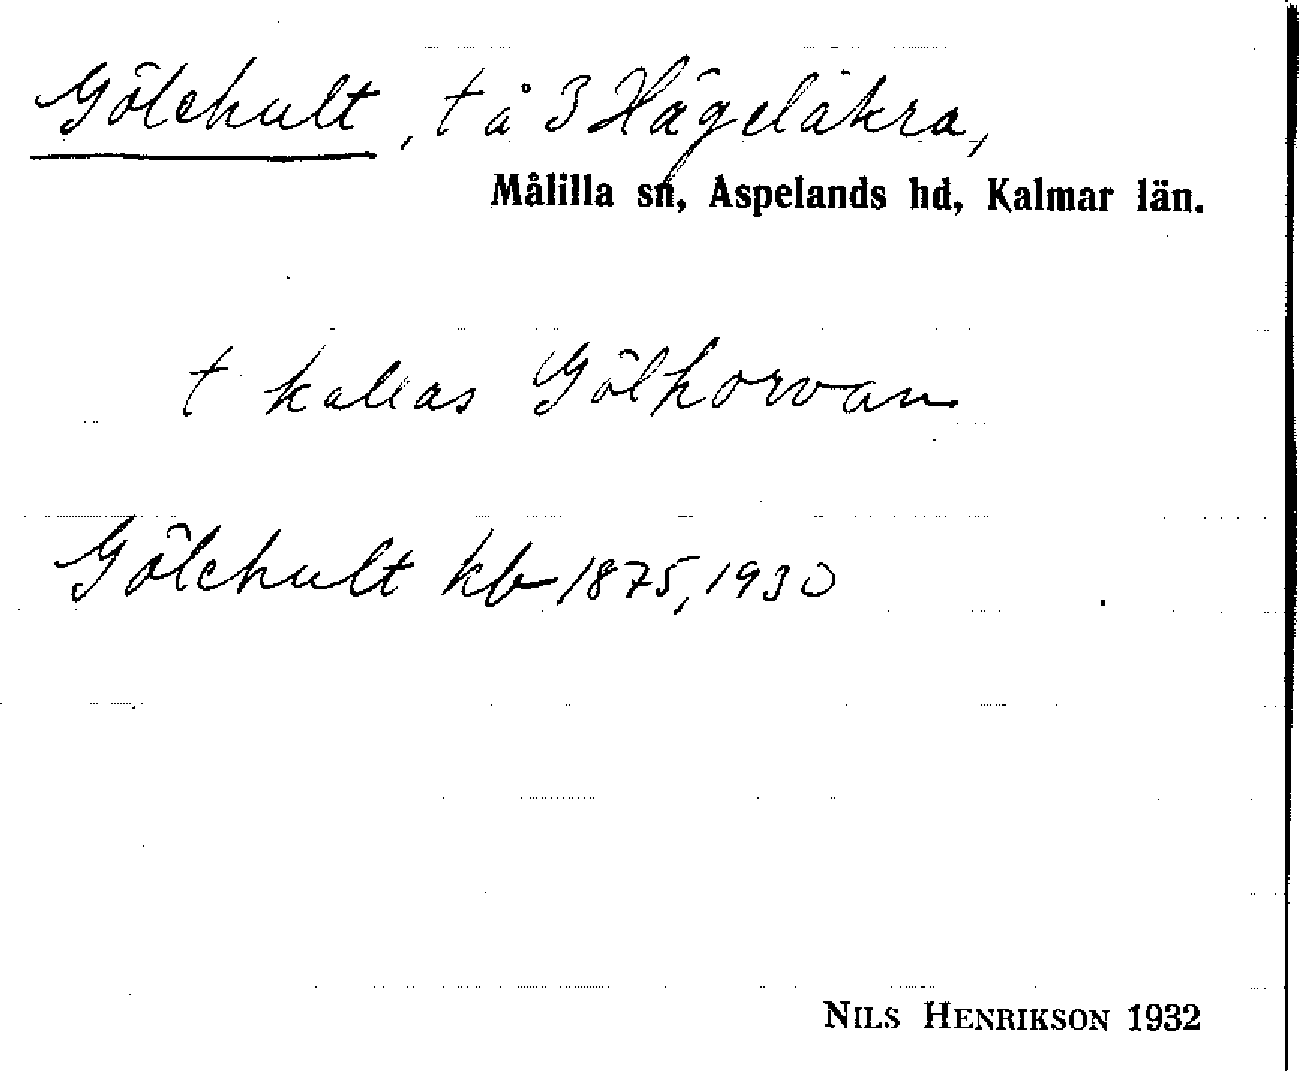 Gölehult, t å 3 Hägelåkra,
Målilla sn, Aspelands hd, Kalmar län.
t kallas Gölhorvan
Gölehult kb 1875, 1930
NILS HENRIKSON 1932